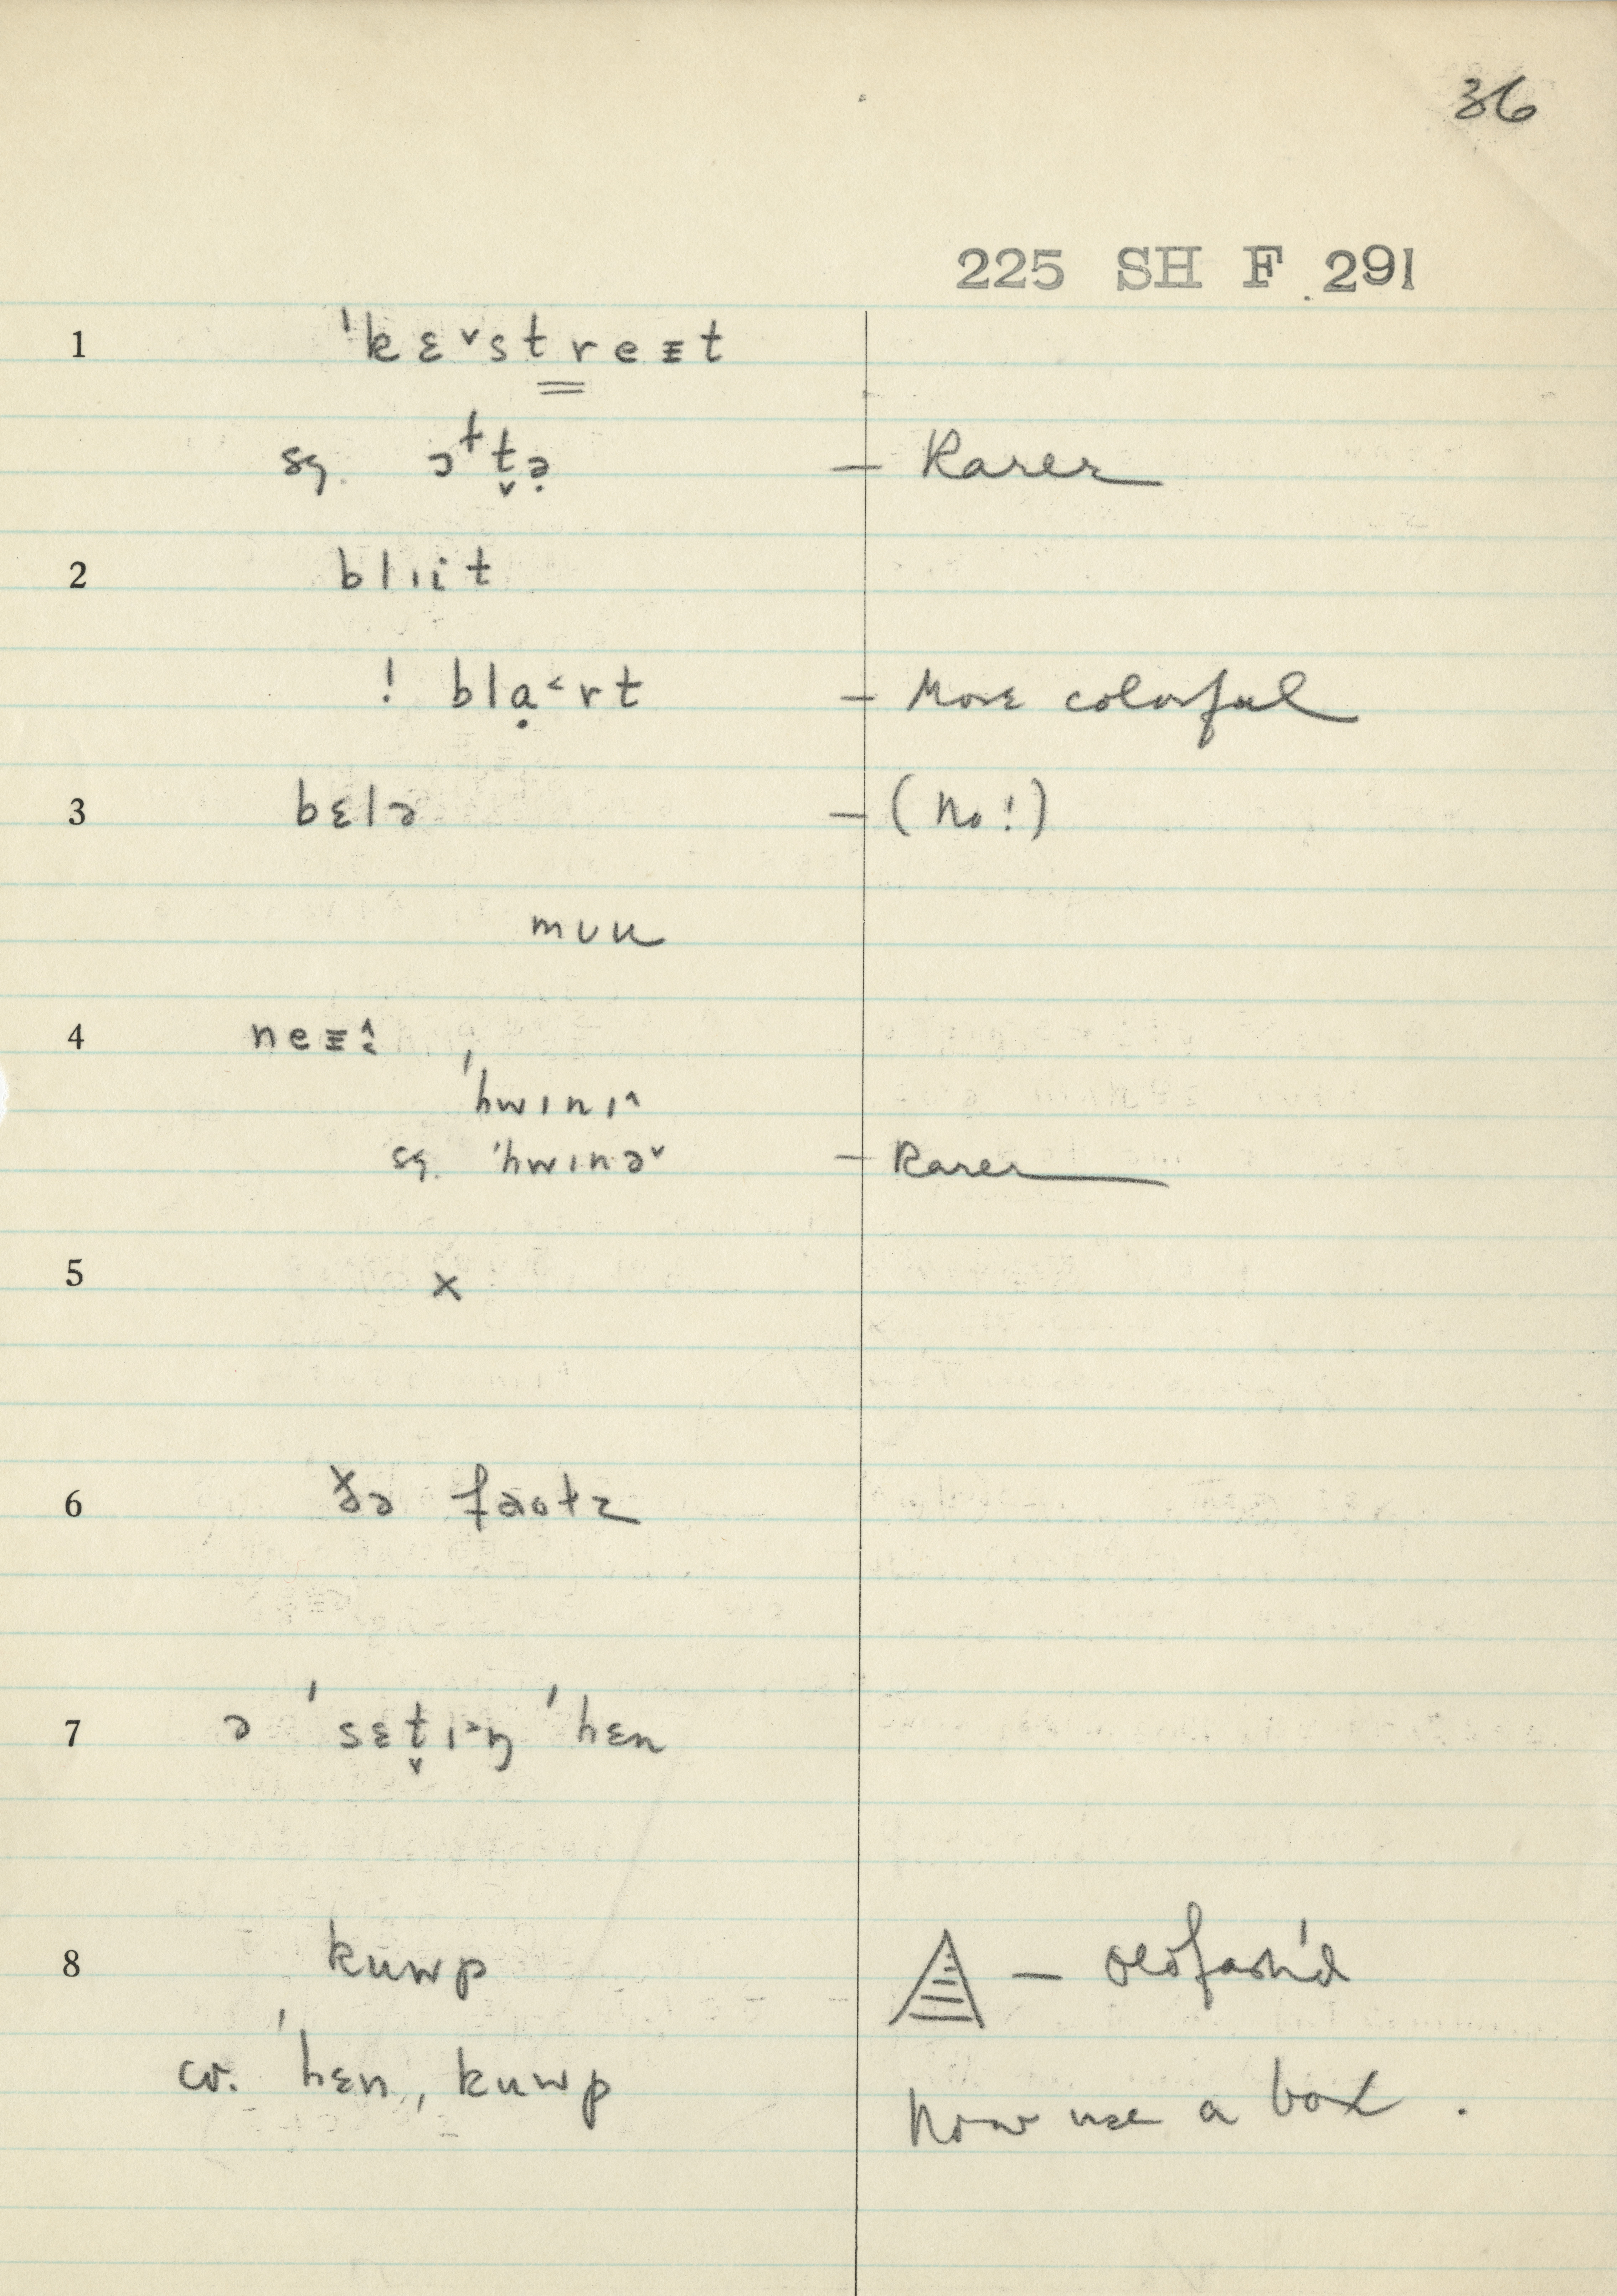 36
225 SH F 291
1 ˈkɛ˅streɪt
sg. ɔᵗt̬ə̣ — Rarer
2 blɪit
! blạ˂rt — More colorful
3 bɛlə — (No!)
mʊu
4 neɪ
ˈhwɪnɪ^
sg. ˈhwɪnə˅ — Rarer
5 x
6 ðə faotz
7 ə ˈsɛt̬ɪ˃ŋ ˈhɛn
8 kuwp — oldfash'd
cv. ˈhɛn, kuwp
Now use a box.